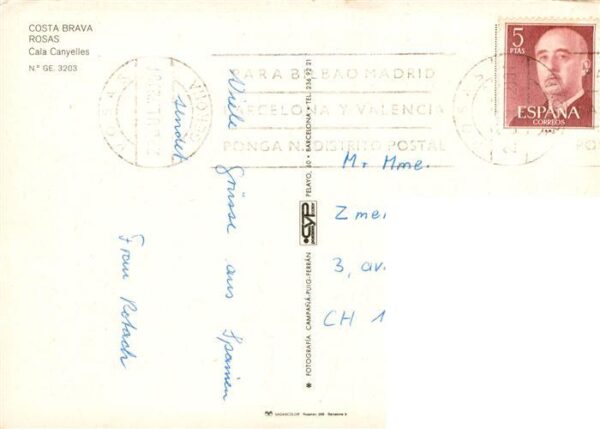 COSTA BRAVA
ROSAS
Cala Canyelles
N.º GE. 3203
PARA BILBAO MADRID
BARCELONA Y VALENCIA
PONGA N. DISTRITO POSTAL
5
PTAS
ESPAÑA
CORREOS
Viele Grüsse aus Spanien
sendet
Frau Rotach
✱ FOTOGRAFÍA CAMPAÑÁ-PUIG-FERRÁN CYP PELAYO, 60 • BARCELONA • TEL. 236 92 21
Mr Mme.
Zmei
3, av.
CH 1